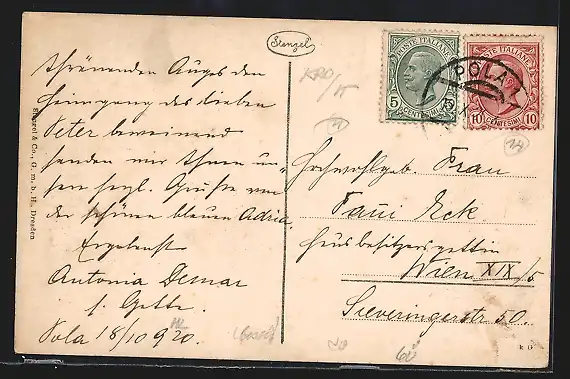 Stengel
thränenden Auges den
Heimgang des lieben
Peter beweinend
senden wir Ihnen un-
sere herzl. Grüße von
der schönen blauen Adria.
Ergebenst
Antonia Demar
Pola 18/10 920
Stengel & Co., G. m. b. H., Dresden
POSTE ITALIANE
5 CENTESIMI 5
POSTE ITALIANE
10 CENTESIMI 10
POLA
Hochwohlgeb. Frau
Fani Eck
Hausbesitzersgattin
Wien XIX/5
Sieveringerstr 50.